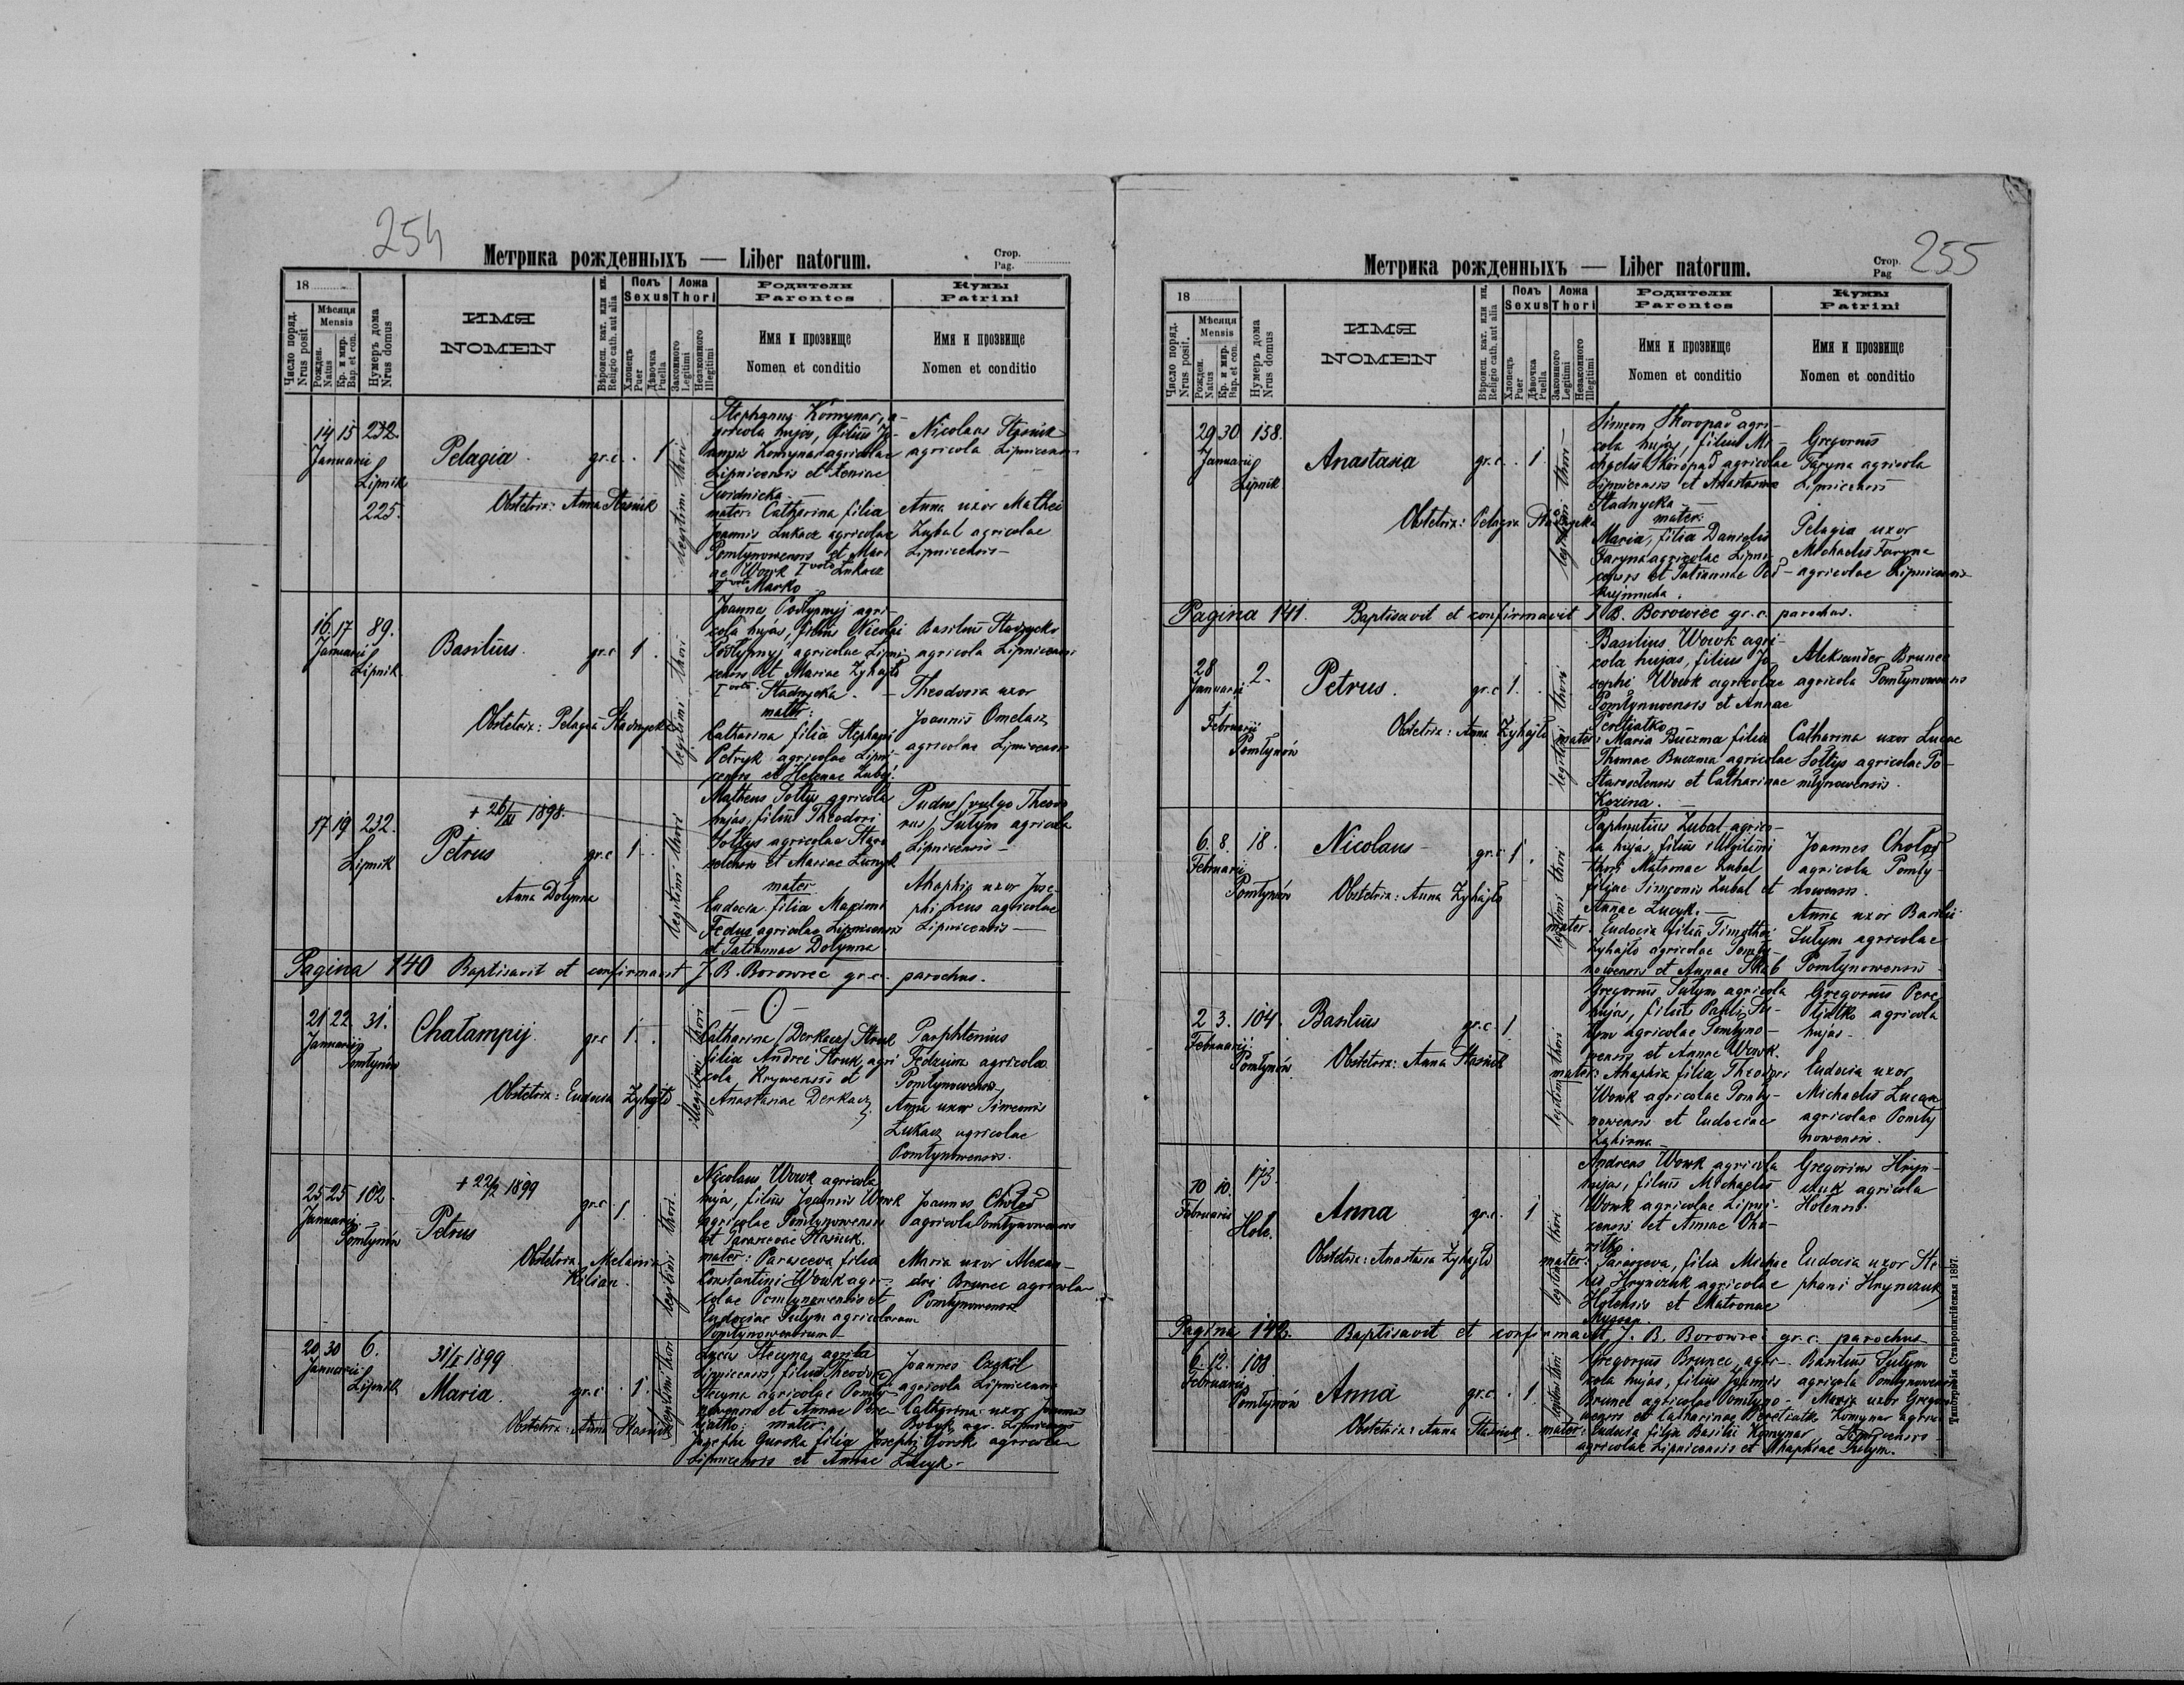 254
Метрика рожденныхъ — Liber natorum.
Стор.
Pag.
18
Число поряд.
Nrus posit
Мѣсяця
Mensis
Рожден.
Natus
Кр. и мир.
Bap. et con.
Нумеръ дома
Nrus domus
ИМЯ
NOMEN
Вѣроисп. кат. или ин.
Religio cath. aut alia
Полъ
Sexus
Хлопецъ
Puer
Дѣвочка
Puella
Ложа
Thori
Законного
Legitimi
Незаконного
Illegitimi
Родители
Parentes
Имя и прозвище
Nomen et conditio
Кумы
Patrini
Имя и прозвище
Nomen et conditio
14 15 232.
Januarii
Lipnik
225.
Pelagia
gr.c. . 1
legitimi thori
Obstetrix: Anna Stasiuk
Stephanus Komynar, a-
gricola hujas, filius Jo-
annis Komynar agricolae
Lipnicensis et Xeniae
Swidnicka
mater: Catharina filia
Joannis Lukacz agricolae
Pomlynowensis et Mari
ae Wowk I voto Lukacz
II voto Marko
Nicolaus Stasiuk
agricola Lipnicensis
Anna uxor Mathei
Zubal agricolae
Lipnicensis —
16 17 89.
Januarii
Lipnik
Basilius.
gr.c 1 .
legitimi thori
Obstetrix: Pelagia Stadnycka
agri-
cola hujas, filius Nicolai
agricolae Lipni-
censis et Mariae Zyhajlo
I voto Stadnycka. —
mater:
Catharina filia Stephani
Petryk agricolae Lipni-
censis et Helenae Zubyj
Basilius Stadnycki
agricola Lipnicensis
Theodosia uxor
Joannis Omelacz
agricolae Lipnicensis
17 19 232.
Lipnik
+ 26/XI 1898.
Petrus
gr.c 1 .
legitimi thori
Anna Dolynna
Matheus Soltys agricola
hujas, filius Theodori
Soltys agricolae Staro
selensis et Mariae Lucyk
mater
Eudocia filia Maximi
Fedus agricolae Lipnicensis
et Tatiannae Dolynna
(vulgo Theodo
rus) Sulym agricola
Lipnicensis —
Ahaphia uxor Jose-
phi Leus agricolae
Lipnicensis —
Pagina 140 Baptisavit et confirmavit J. B. Borowiec gr. c. parochus.
21 22 31.
Januarii
Pomlynów
Chalampij
gr.c 1 .
illegitimi thori
Obstetrix: Eudocia Zyhajlo
— O —
Catharina (Derkacz) Struk
filia Andrei Struk agri
cola et
Anastasiae Derkacz
Parphtenius
Fedzina agricola
Pomlynowensis
Anna uxor Simeonis
Lukacz agricolae
Pomlynowensis.
25 25 102
Januarii
Pomlynów
+ 22/2 1899
Petrus
gr.c 1 .
legitimi thori.
Obstetrix Melania
Kilian.
Nicolaus Wowk agricola
hujas, filius Joannis Wowk
agricolae Pomlynowensis
et Parascevae Stasiuk.
mater: Parasceva filia
Constantini Wowk agri-
colae Pomlynowensis et
Eudociae Sulym agricolarum
Pomlynowensium —
Joannes Cholod
agricola Pomlynowensis
Maria uxor Alexan-
dri Brunec agricolae
Pomlynowensis
20 30 6.
Januarii
Lipnik
31/I 1899
Maria.
gr.c . 1 .
legitimi thori
Obstetrix: Anna Stasiuk
Lucas Stecyna agricola
Lipnicensis, filius Theodori
Stecyna agricolae Pomly-
nowensis et Annae Pere-
tiatko. mater:
Josepha Gurska filia Josephi Gorsk agricolae
Lipnicensis et Annae Lucyk —
Joannes
agricola Lipnicensis
Catharina uxor Joannis
agr. Lipnicensis
255
Метрика рожденныхъ — Liber natorum.
Стор.
Pag
18
Число поряд.
Nrus posit.
Мѣсяця
Mensis
Рожден.
Natus
Кр. и мир.
Bap. et con.
Нумеръ дома
Nrus domus
ИМЯ
NOMEN
Вѣроисп. кат. или ин.
Religio cath. aut alia
Полъ
Sexus
Хлопецъ
Puer
Дѣвочка
Puella
Ложа
Thori
Законного
Legitimi
Незаконного
Illegitimi
Родители
Parentes
Имя и прозвище
Nomen et conditio
Кумы
Patrini
Имя и прозвище
Nomen et conditio
29 30 158.
Januarii
Lipnik
Anastasia
gr.c . 1
legitimi thori —
Obstetrix: Pelagia Stadnycka
Simeon Skoropad agri-
cola hujas, filius Mi-
chaelis Skoropad agricolae
Lipnicensis et Anastasiae
Stadnycka —
mater:
Maria, filia Danielis
Faryna agricolae Lipni-
censis et Tatiannae
Gregorius
Faryna agricola
Lipnicensis
Pelagia uxor
Michaelis Faryna
agricolae Lipnicensis
Pagina 141. Baptisavit et confirmavit J. B. Borowiec gr. c. parochus.
28
Januarii 2.
1
Februarii
Pomlynów
Petrus.
gr.c 1.
legitimi thori
Obstetrix: Anna Zyhajlo
Basilius Wowk agri-
cola hujas, filius Jo-
sephi Wowk agricolae
Pomlynowensis et Annae
Peretiatko
mater: Maria Buczma filia
Thomae Buczma agricolae
Staroselensis et Catharinae
Kozina. —
Aleksander Brunec
agricola Pomlynowensis
Catharina uxor Lucae
Soltys agricolae Po-
mlynowensis.
6. 8. 18.
Februarii
Pomlynów
Nicolaus —
gr.c 1 .
legitimi thori
Obstetrix: Anna Zyhajlo
Paphnutius Zubal agrico-
la hujas, filius illegitimi
thori Matronae Zubal
filiae Simeonis Zubal et
Annae Lucyk. —
mater. Eudocia filia Timothei
Zyhajlo agricolae Pomly-
nowensis et Annae Skab
Joannes Cholod
agricola Pomly-
nowensis.
Anna uxor Basilii
Sulym agricolae
Pomlynowensis
2 3. 104.
Februarii
Pomlynów
Basilius
gr.c 1.
legitimi thori
Obstetrix: Anna Stasiuk
Gregorius Sulym agricola
hujas, filius Pauli Su-
lym agricolae Pomlyno-
wensis et Annae Wowk.
mater: Ahaphia filia Theodori
Wowk agricolae Pomly-
nowensis et Eudociae
Gregorius Pere
tiatko agricola
hujas —
Eudocia uxor
Michaelis Lucan
agricolae Pomly
nowensis.
10 10. 173.
Februarii
Hole.
Anna
gr.c. 1
legitimi thori
Obstetrix: Anastasia Zyhajlo
Andreas Wowk agricola
hujas, filius Michaelis
Wowk agricolae Lipni-
censis et Annae
mater: Parasceva, filia Michae
lis Hrynczuk agricolae
Holensis et Matronae
Gregorius Hryn-
czuk agricola
Holensis.
Eudocia uxor Ste
phani Hrynczuk
Pagina 142. Baptisavit et confirmavit J. B. Borowiec gr. c. parochus
6. 12. 108
Februarii
Pomlynów
Anna
gr.c . 1.
legitimi thori
Obstetrix: Anna Stasiuk.
Gregorius Brunec, agri-
cola hujas, filius Joannis
Brunec agricolae Pomlyno-
wensis et Catharinae Peretiatko
mater: Eudocia filia Basilii Komynar
agricolae Lipnicensis et Ahaphiae Sulym.
Basilius Sulym
agricola Pomlynowensis
Maria uxor Gregorii
Komynar agrico
Lipnicensis
Типографія Ставропигійская 1897.